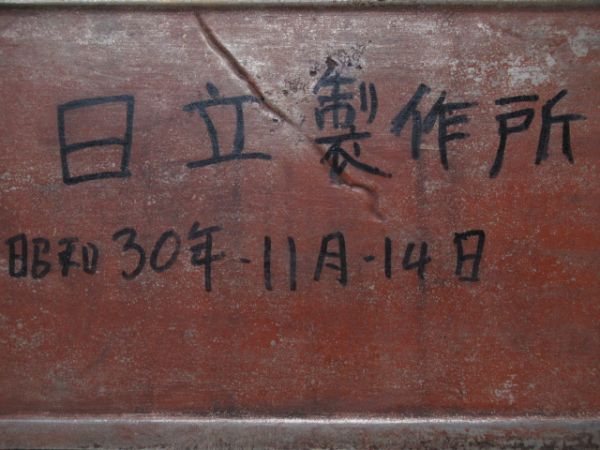 日立製作所
昭和30年-11月-14日